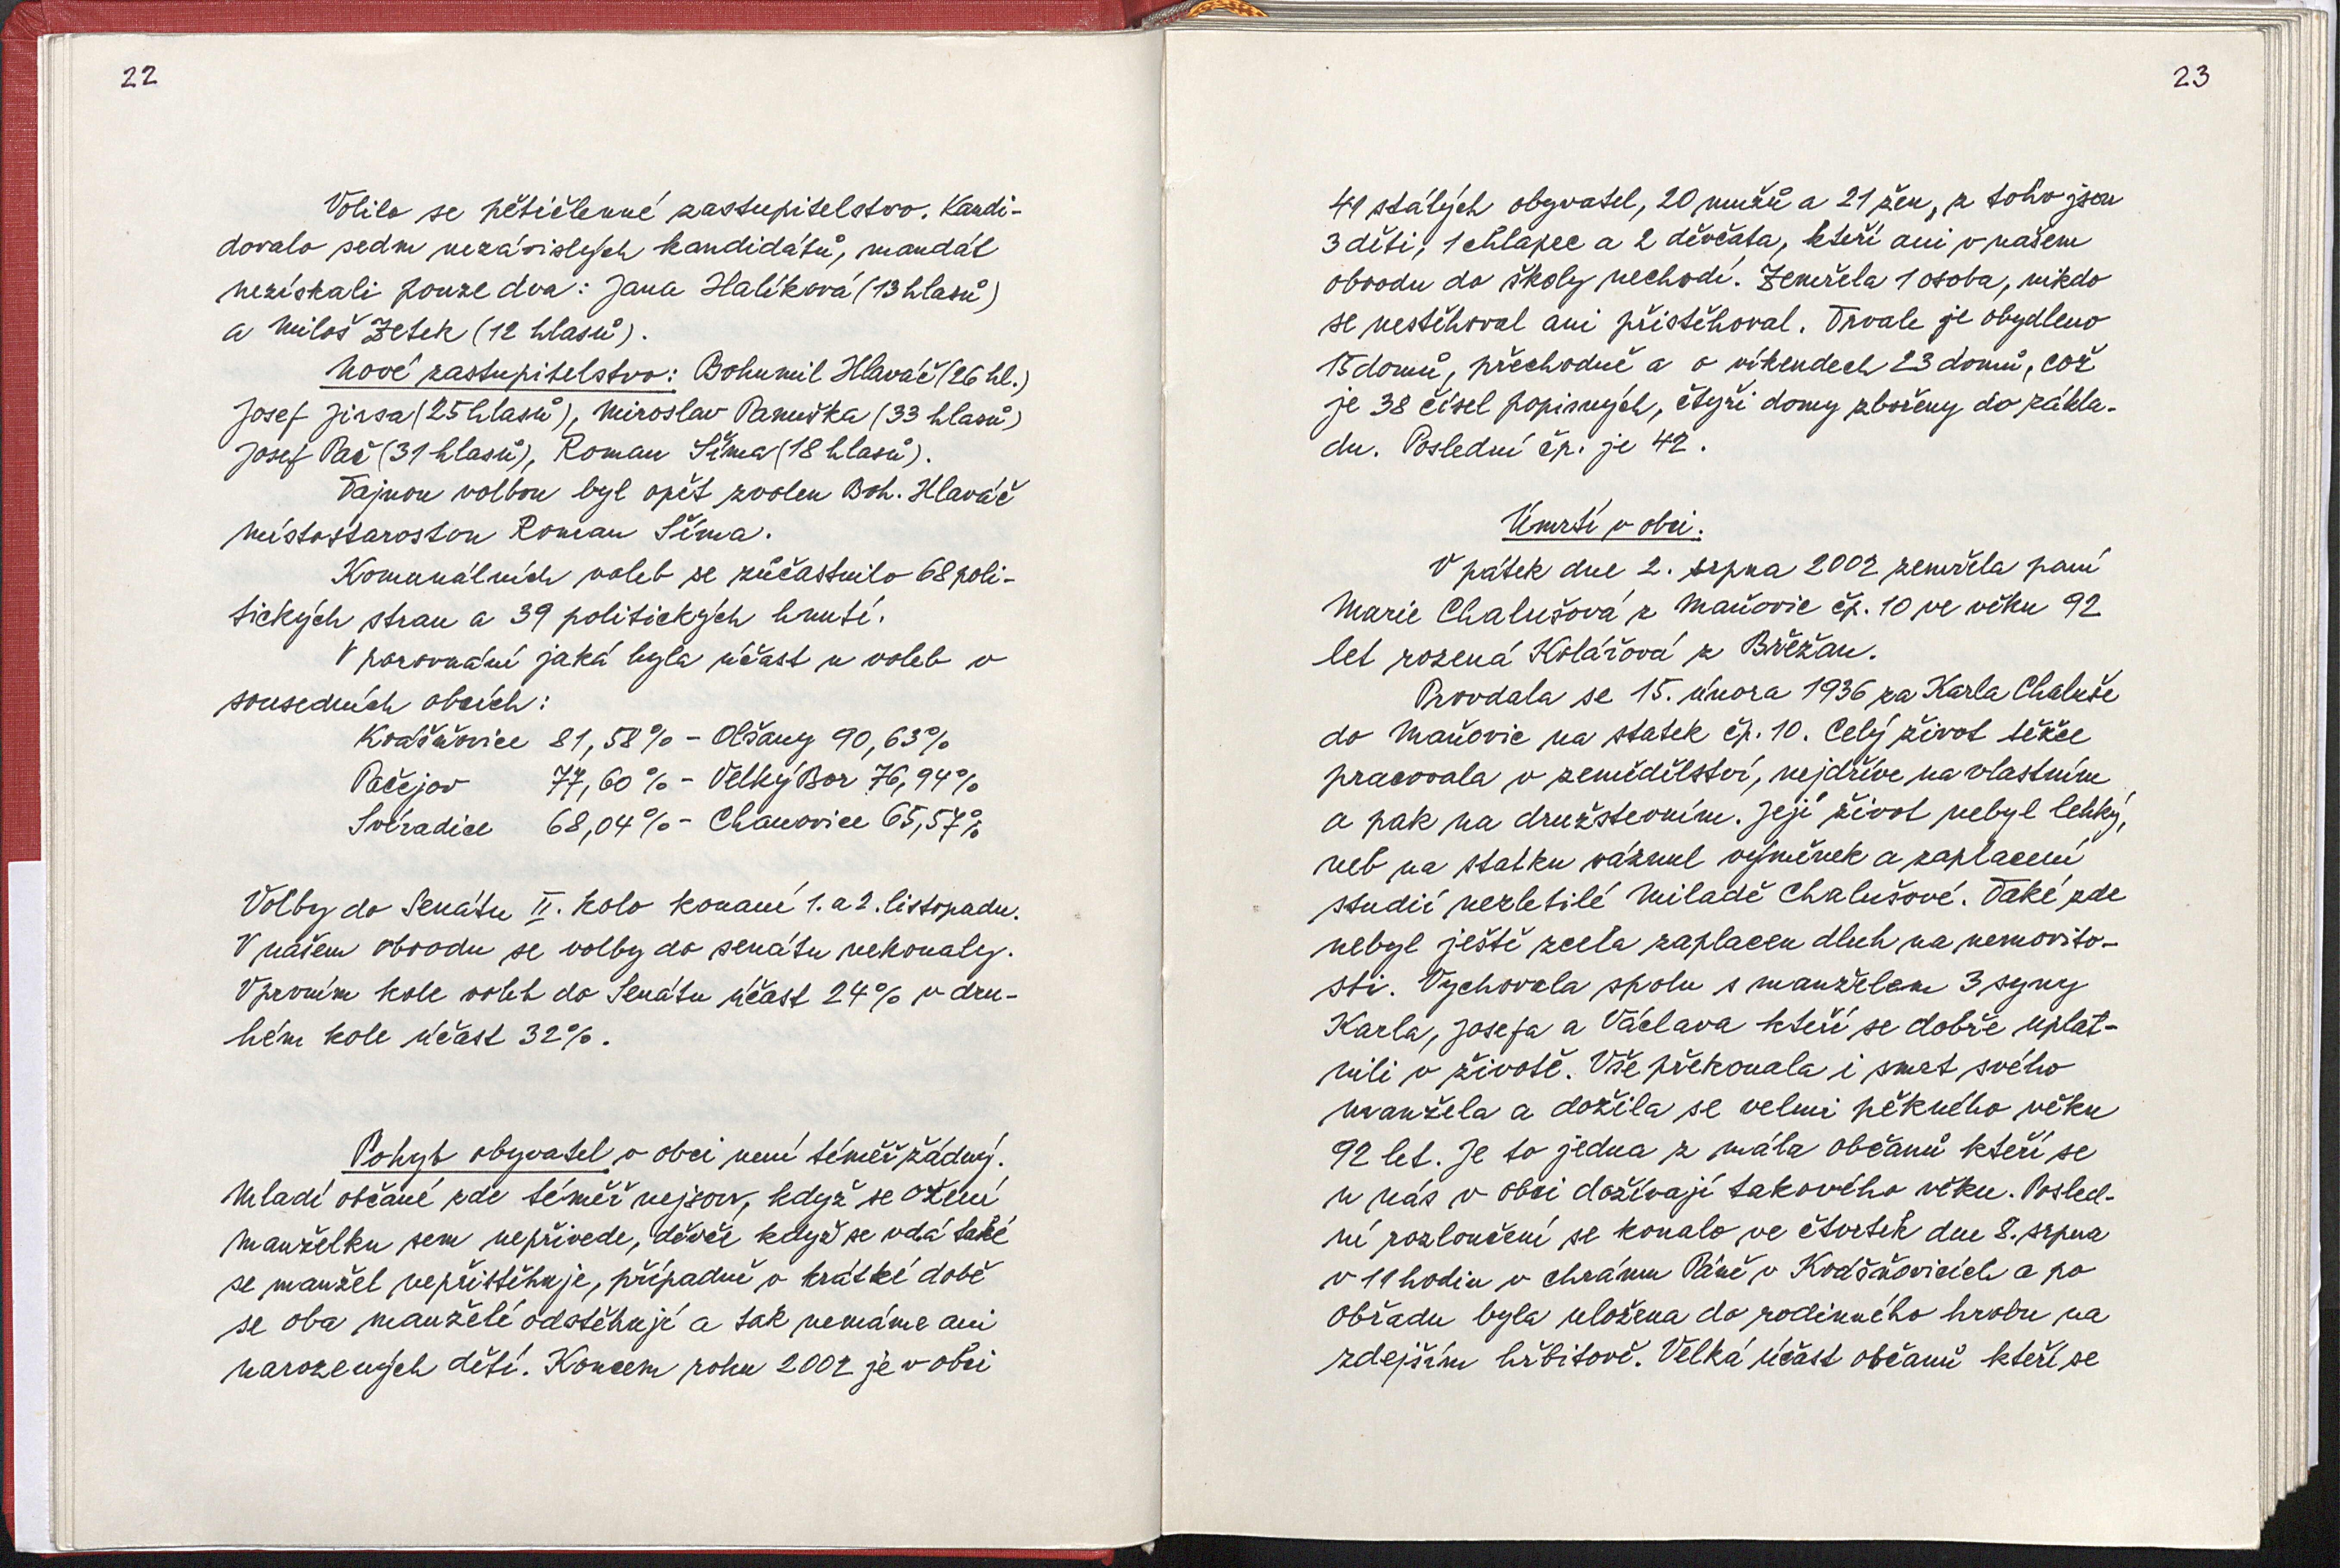 22
Volilo se pětičlenné zastupitelstvo. Kandi-
dovalo sedm nezávislých kandidátů, mandát
nezískali pouze dva: Jana Halíková (13 hlasů)
a Miloš Zetek (12 hlasů).
Nové zastupitelstvo: Bohumil Hlaváč (26 hl.)
Josef Jirsa (25 hlasů), Miroslav Panuška (33 hlasů)
Josef Pač (31 hlasů), Roman Šíma (18 hlasů).
Tajnou volbou byl opět zvolen Boh. Hlaváč
místostarostou Roman Šíma.
Komunálních voleb se zúčastnilo 68 poli-
tických stran a 39 politických hnutí.
V porovnání jaká byla účast u voleb v
sousedních obcích:
Kvášňovice 81,58% - Olšany 90,63%
Pačejov 77,60% - Velký Bor 76,94%
Svéradice 68,04% - Chanovice 65,57%
Volby do Senátu II. kolo konané 1. a 2. listopadu.
V našem obvodu se volby do senátu nekonaly.
V prvním kole voleb do Senátu účast 24% v dru-
hém kole účast 32%.
Pohyb obyvatel v obci není téměř žádný.
Mladí občané zde téměř nejsou, když se ožení
manželku sem nepřivede, děvče když se vdá také
se manžel nepřistěhuje, případně v krátké době
se oba manželé odstěhují a tak nemáme ani
narozených dětí. Koncem roku 2002 je v obci
23
41 stálých obyvatel, 20 mužů a 21 žen, z toho jsou
3 děti, 1 chlapec a 2 děvčata, kteří ani v našem
obvodu do školy nechodí. Zemřela 1 osoba, nikdo
se nestěhoval ani přistěhoval. Trvale je obydleno
15 domů, přechodně a o víkendech 23 domů, což
je 38 čísel popisných, čtyři domy zbořeny do zákla-
du. Poslední čp. je 42.
Úmrtí v obci.
V pátek dne 2. srpna 2002 zemřela paní
Marie Chalušová z Maňovic čp. 10 ve věku 92
let rozená Kolářová z Břežan.
Provdala se 15. února 1936 za Karla Chaluše
do Maňovic na statek čp. 10. Celý život těžce
pracovala v zemědělství, nejdříve na vlastním
a pak na družstevním. Její život nebyl lehký,
neb na statku váznul výměnek a zaplacení
studií nezletilé Miladě Chalušové. Také zde
nebyl ještě zcela zaplacen dluh na nemovito-
sti. Vychovala spolu s manželem 3 syny
Karla, Josefa a Václava kteří se dobře uplat-
nili v životě. Vše překonala i smrt svého
manžela a dožila se velmi pěkného věku
92 let. Je to jedna z mála občanů kteří se
u nás v obci dožívají takového věku. Posled-
ní rozloučení se konalo ve čtvrtek dne 8. srpna
v 11 hodin v chrámu Páně v Kvášňovicích a po
obřadu byla uložena do rodinného hrobu na
zdejším hřbitově. Velká účast občanů kteří se